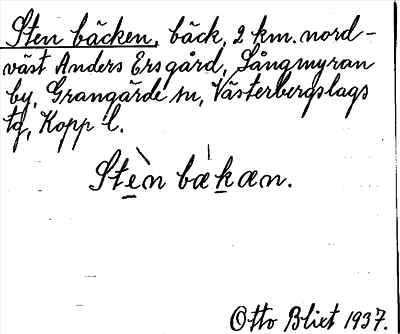 Sten bäcken, bäck, 2 km. nord-
väst Anders Ersgård, Sångmyran
by, Grangärde sn, Västerbergslags
tg, Kopp l.
Stèn bækæn.
Otto Blixt 1937.